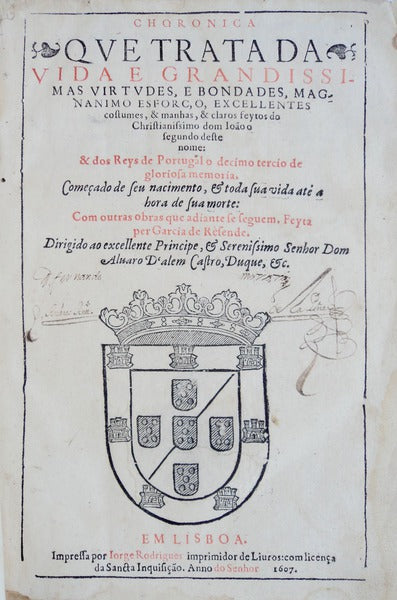 CHORONICA
QVE TRATA DA
VIDA E GRANDISSI-
MAS VIRTVDES, E BONDADES, MAG-
NANIMO ESFORC,O, EXCELLENTES
costumes, & manhas, & claros feytos do
Christianissimo dom Ioão o
segundo deste
nome:
& dos Reys de Portugal o decimo tercio de
gloriosa memoria.
Começado de seu nacimento, & toda sua vida até a
hora de sua morte:
Com outras obras que adiante se seguem. Feyta
per Garcia de Resende.
Dirigido ao excellente Principe, & Serenissimo Senhor Dom
Aluaro D'alem Castro, Duque, &c.
EM LISBOA.
Impressa por Iorge Rodrigues imprimidor de Liuros: com licença
da Sancta Inquisição. Anno do Senhor 1607.